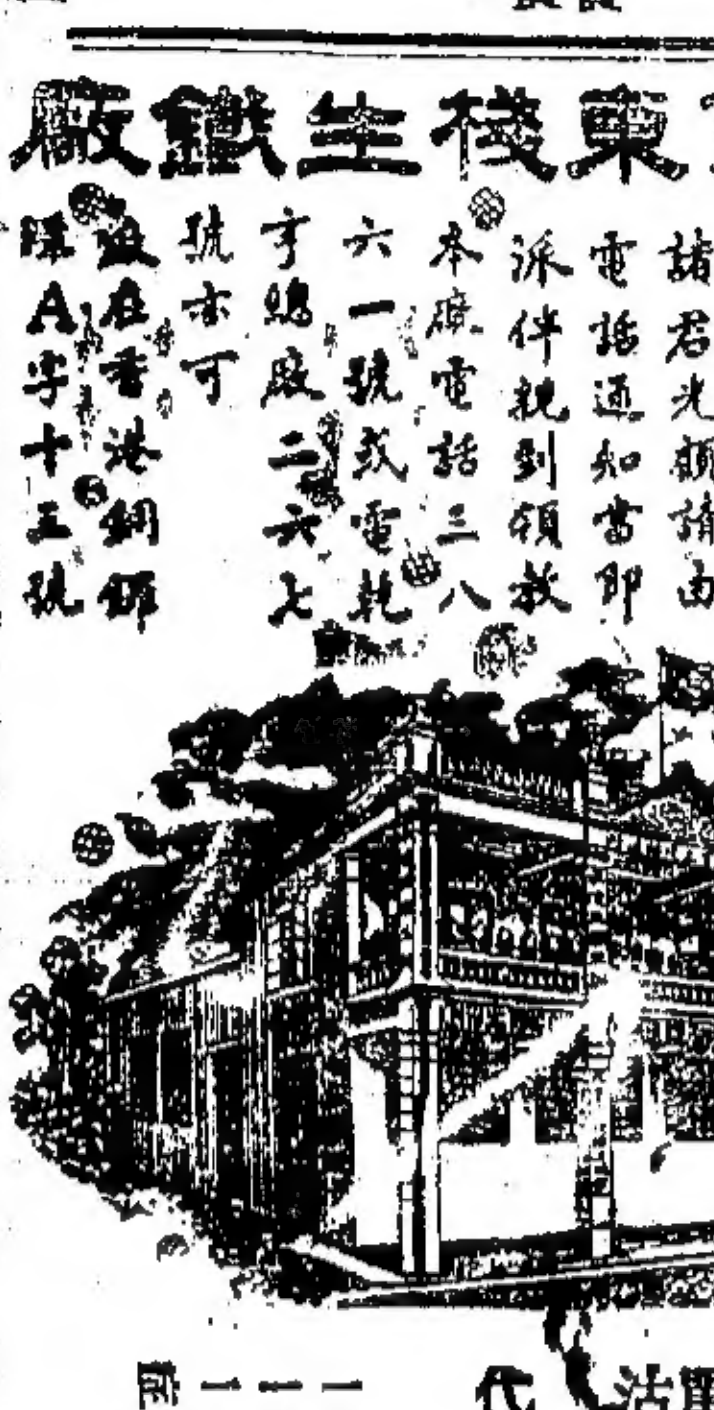 東棧生鐵廠
諸君光顧請由
電話通知當即
派伴親到領教
本廠電話三八
六一號或電乾
亨總廠二六七
號亦可
設在香港銅鑼
環A字十五號
代
一一一